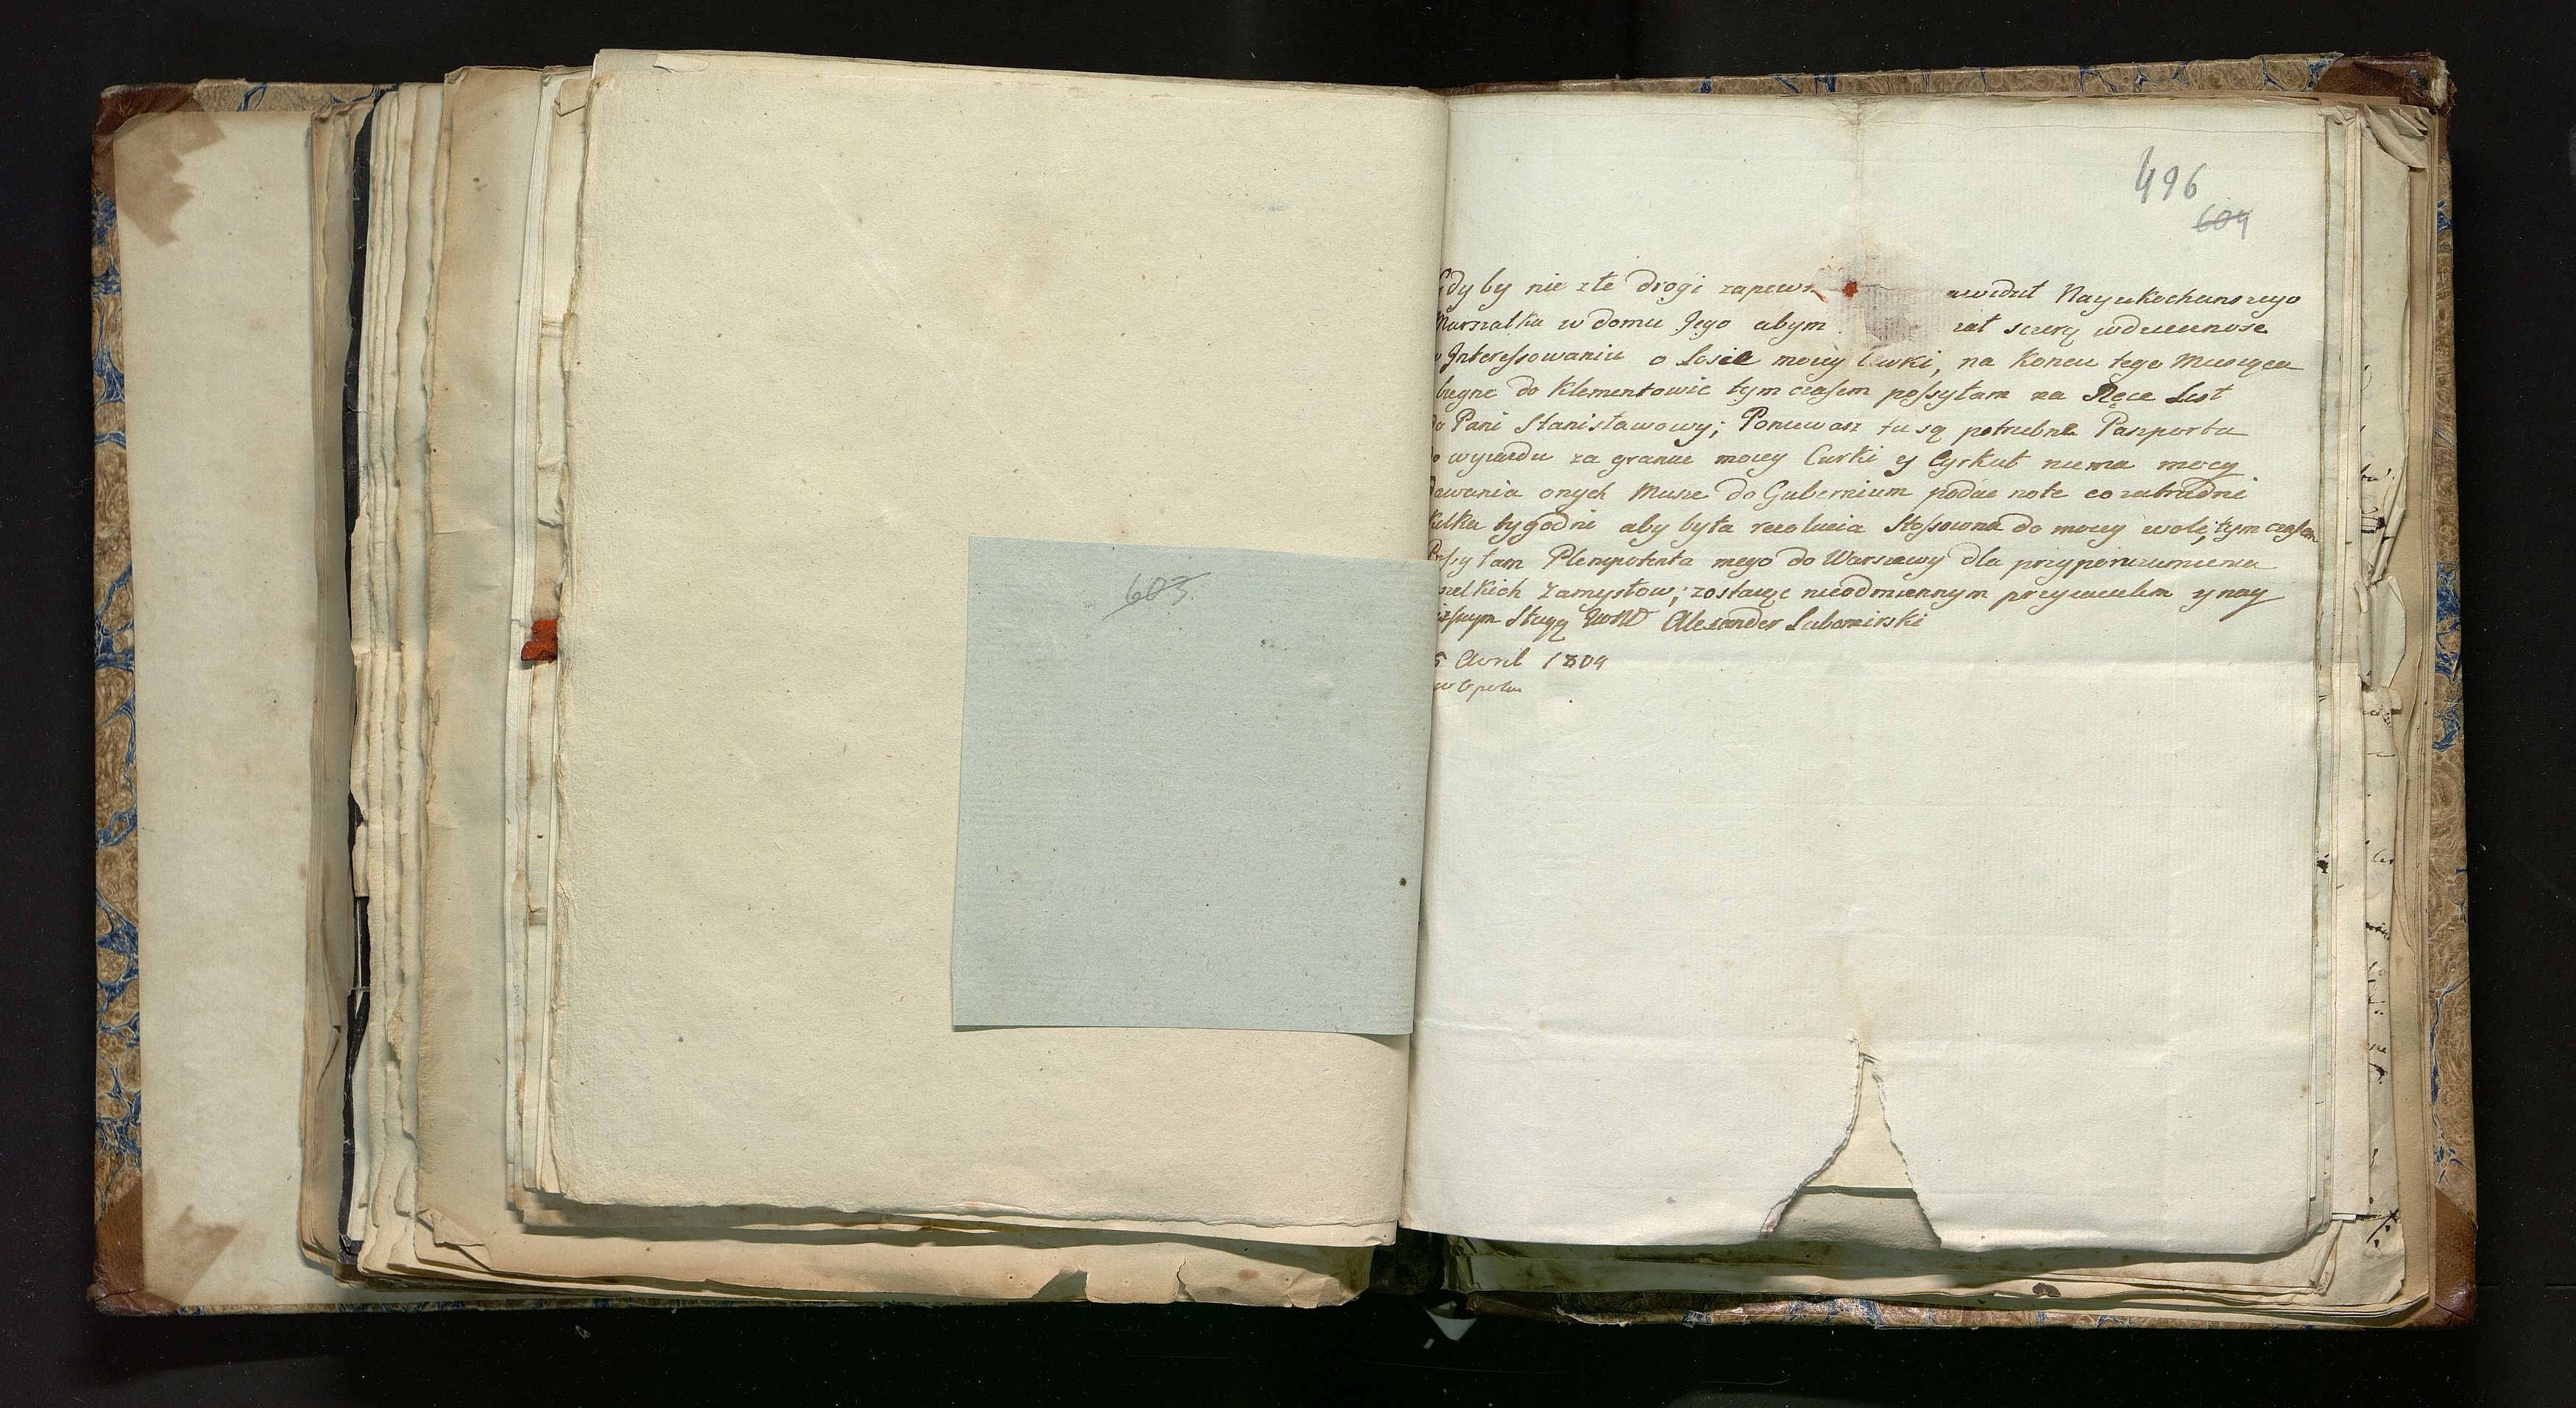 603.
496
604
Gdy by nie złe drogi zapewn awidził Nayukochanszego
Marszałka w domu Jego abym zał sczerą wdziecznosc
w Interessowaniu o Losie moiey Curki, na Koncu tego Miesiąca
biegne do Klementowic tym czasem possyłam na Ręce List
do Pani Stanisławowy; Poniewasz tu są potrzebne Paszporta
do wyiazdu za granice moiey Curki y Cyrkuł niema mocy
dawania onych Musze do Gubernium podac note co zatrudni
kilka tygodni aby była rezolucia stossowna do moiey woli, tym czasem
Possyłam Plenipotenta mego do Warszawy dla przyporuzumienia
wszelkich zamysłow; zostaięc nieodmiennym przyiacielem y nay
nizszym Sługą WWD Alexander Lubomirski
5 Avril 1804
w Opolu